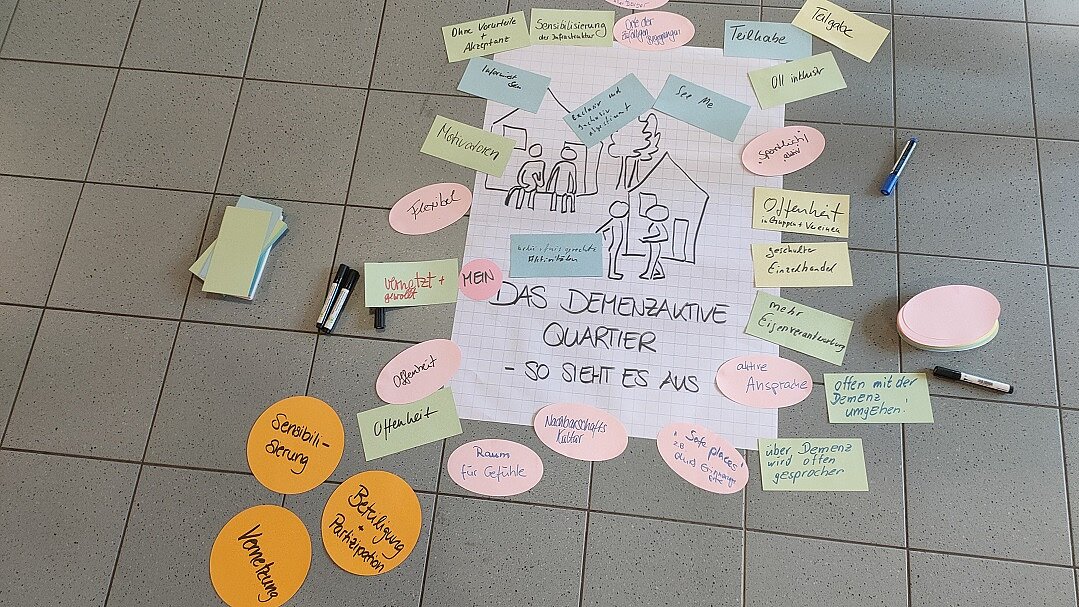 Ohne Vorurteile
+
Akzeptanz
Sensibilisierung
der Infrastruktur
Orte der
zufälligen
Begegnungen
Teilhabe
Teilgabe
Informiert
sein
exclusiv und
inclusiv
abgestimmt
See Me
All inklusiv
Motivatoren
"Sportlich"
aktiv
Flexibel
Offenheit
in Gruppen + Vereinen
geschulter
Einzelhandel
Aktivitäten
vernetzt +
gewollt
MEIN
DAS DEMENZAKTIVE
QUARTIER
- SO SIEHT ES AUS
mehr
Eigenverantwortung
Offenheit
aktive
Ansprache
offen mit der
Demenz
umgehen!
Offenheit
Nachbarschafts
Kultur
Raum
für Gefühle
"Safe places"
z.B.
über Demenz
wird offen
gesprochen
Sensibili-
sierung
Beteiligung
+
Partizipation
Vernetzung